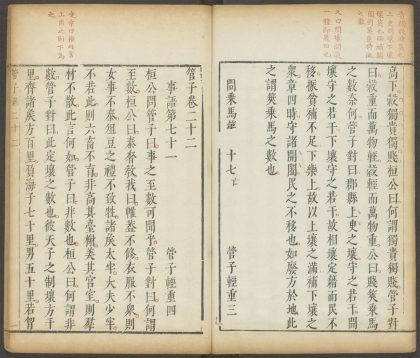 高下穀獨貴獨賤桓公曰何謂獨貴獨賤管子對
曰穀重而萬物輕穀輕而萬物重公曰賤筴乘馬
之數奈何管子對曰郡縣上臾之壤守之若干間
壤守之若干下壤守之若干故相壤定籍而民不
移振貧補不足下樂上故以上壤之滿補下壤之
衆章四時守諸開闔民之不移也如廢方於地此
之謂筴乘馬之數也
問乘馬第 亡 管子輕重三
管子卷二十二
事語第七十一 管子輕重四
桓公問管子曰事之至數可聞乎管子對曰何謂
至數桓公曰秦奢教我曰帷蓋不修衣服不衆則
女事不泰俎豆之禮不致牲諸矦太牢大夫少牢
不若此則六畜不育非高其臺榭美其宮室則羣
材不散此言何如管子曰非數也桓公曰何謂非
數管子對曰此定壤之數也彼天子之制壤方千
里齊諸矦方百里負海子七十里男五十里若胷
管子二十二